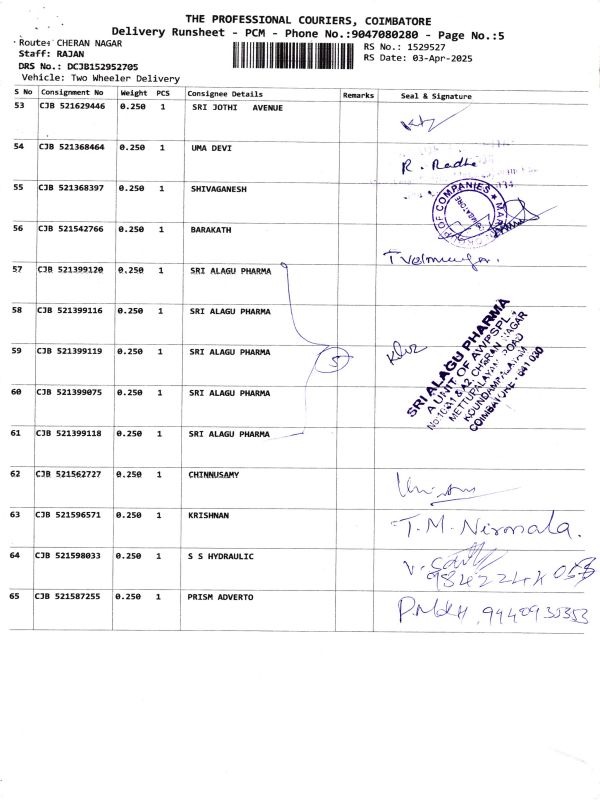 THE PROFESSIONAL COURIERS, COIMBATORE
Delivery Runsheet - PCM - Phone No.:9047080280 - Page No.:5
Route: CHERAN NAGAR
RS No.: 1529527
Staff: RAJAN
RS Date: 03-Apr-2025
DRS No.: DCJB152952705
Vehicle: Two Wheeler Delivery
S No Consignment No Weight PCS Consignee Details Remarks Seal & Signature
53 CJB 521629446 0.250 1 SRI JOTHI AVENUE
54 CJB 521368464 0.250 1 UMA DEVI
R. Radha
55 CJB 521368397 0.250 1 SHIVAGANESH
GROUP OF COMPANIES ★
COIMBATORE
56 CJB 521542766 0.250 1 BARAKATH
57 CJB 521399120 0.250 1 SRI ALAGU PHARMA
58 CJB 521399116 0.250 1 SRI ALAGU PHARMA
59 CJB 521399119 0.250 1 SRI ALAGU PHARMA
5
SRI ALAGU PHARMA
A UNIT OF AWPSPL
CHERAN NAGAR
METTUPALAYAM ROAD
KOUNDAMPALAYAM
COIMBATORE - 641 030
60 CJB 521399075 0.250 1 SRI ALAGU PHARMA
61 CJB 521399118 0.250 1 SRI ALAGU PHARMA
62 CJB 521562727 0.250 1 CHINNUSAMY
63 CJB 521596571 0.250 1 KRISHNAN
T.M. Nirmala.
64 CJB 521598033 0.250 1 S S HYDRAULIC
65 CJB 521587255 0.250 1 PRISM ADVERTO
9940935353